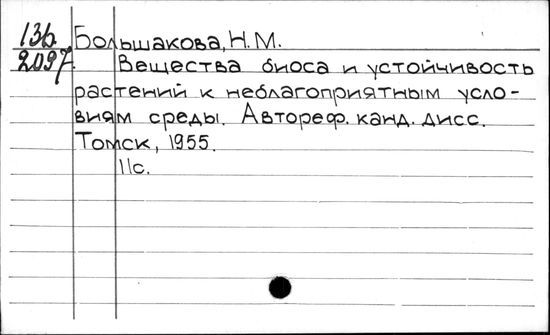 13б Большакова, Н.М.
2097 Вещества биоса и устойчивость
растений к неблагоприятным усло-
виям среды. Автореф. канд. дисс.
Томск, 1955.
11с.